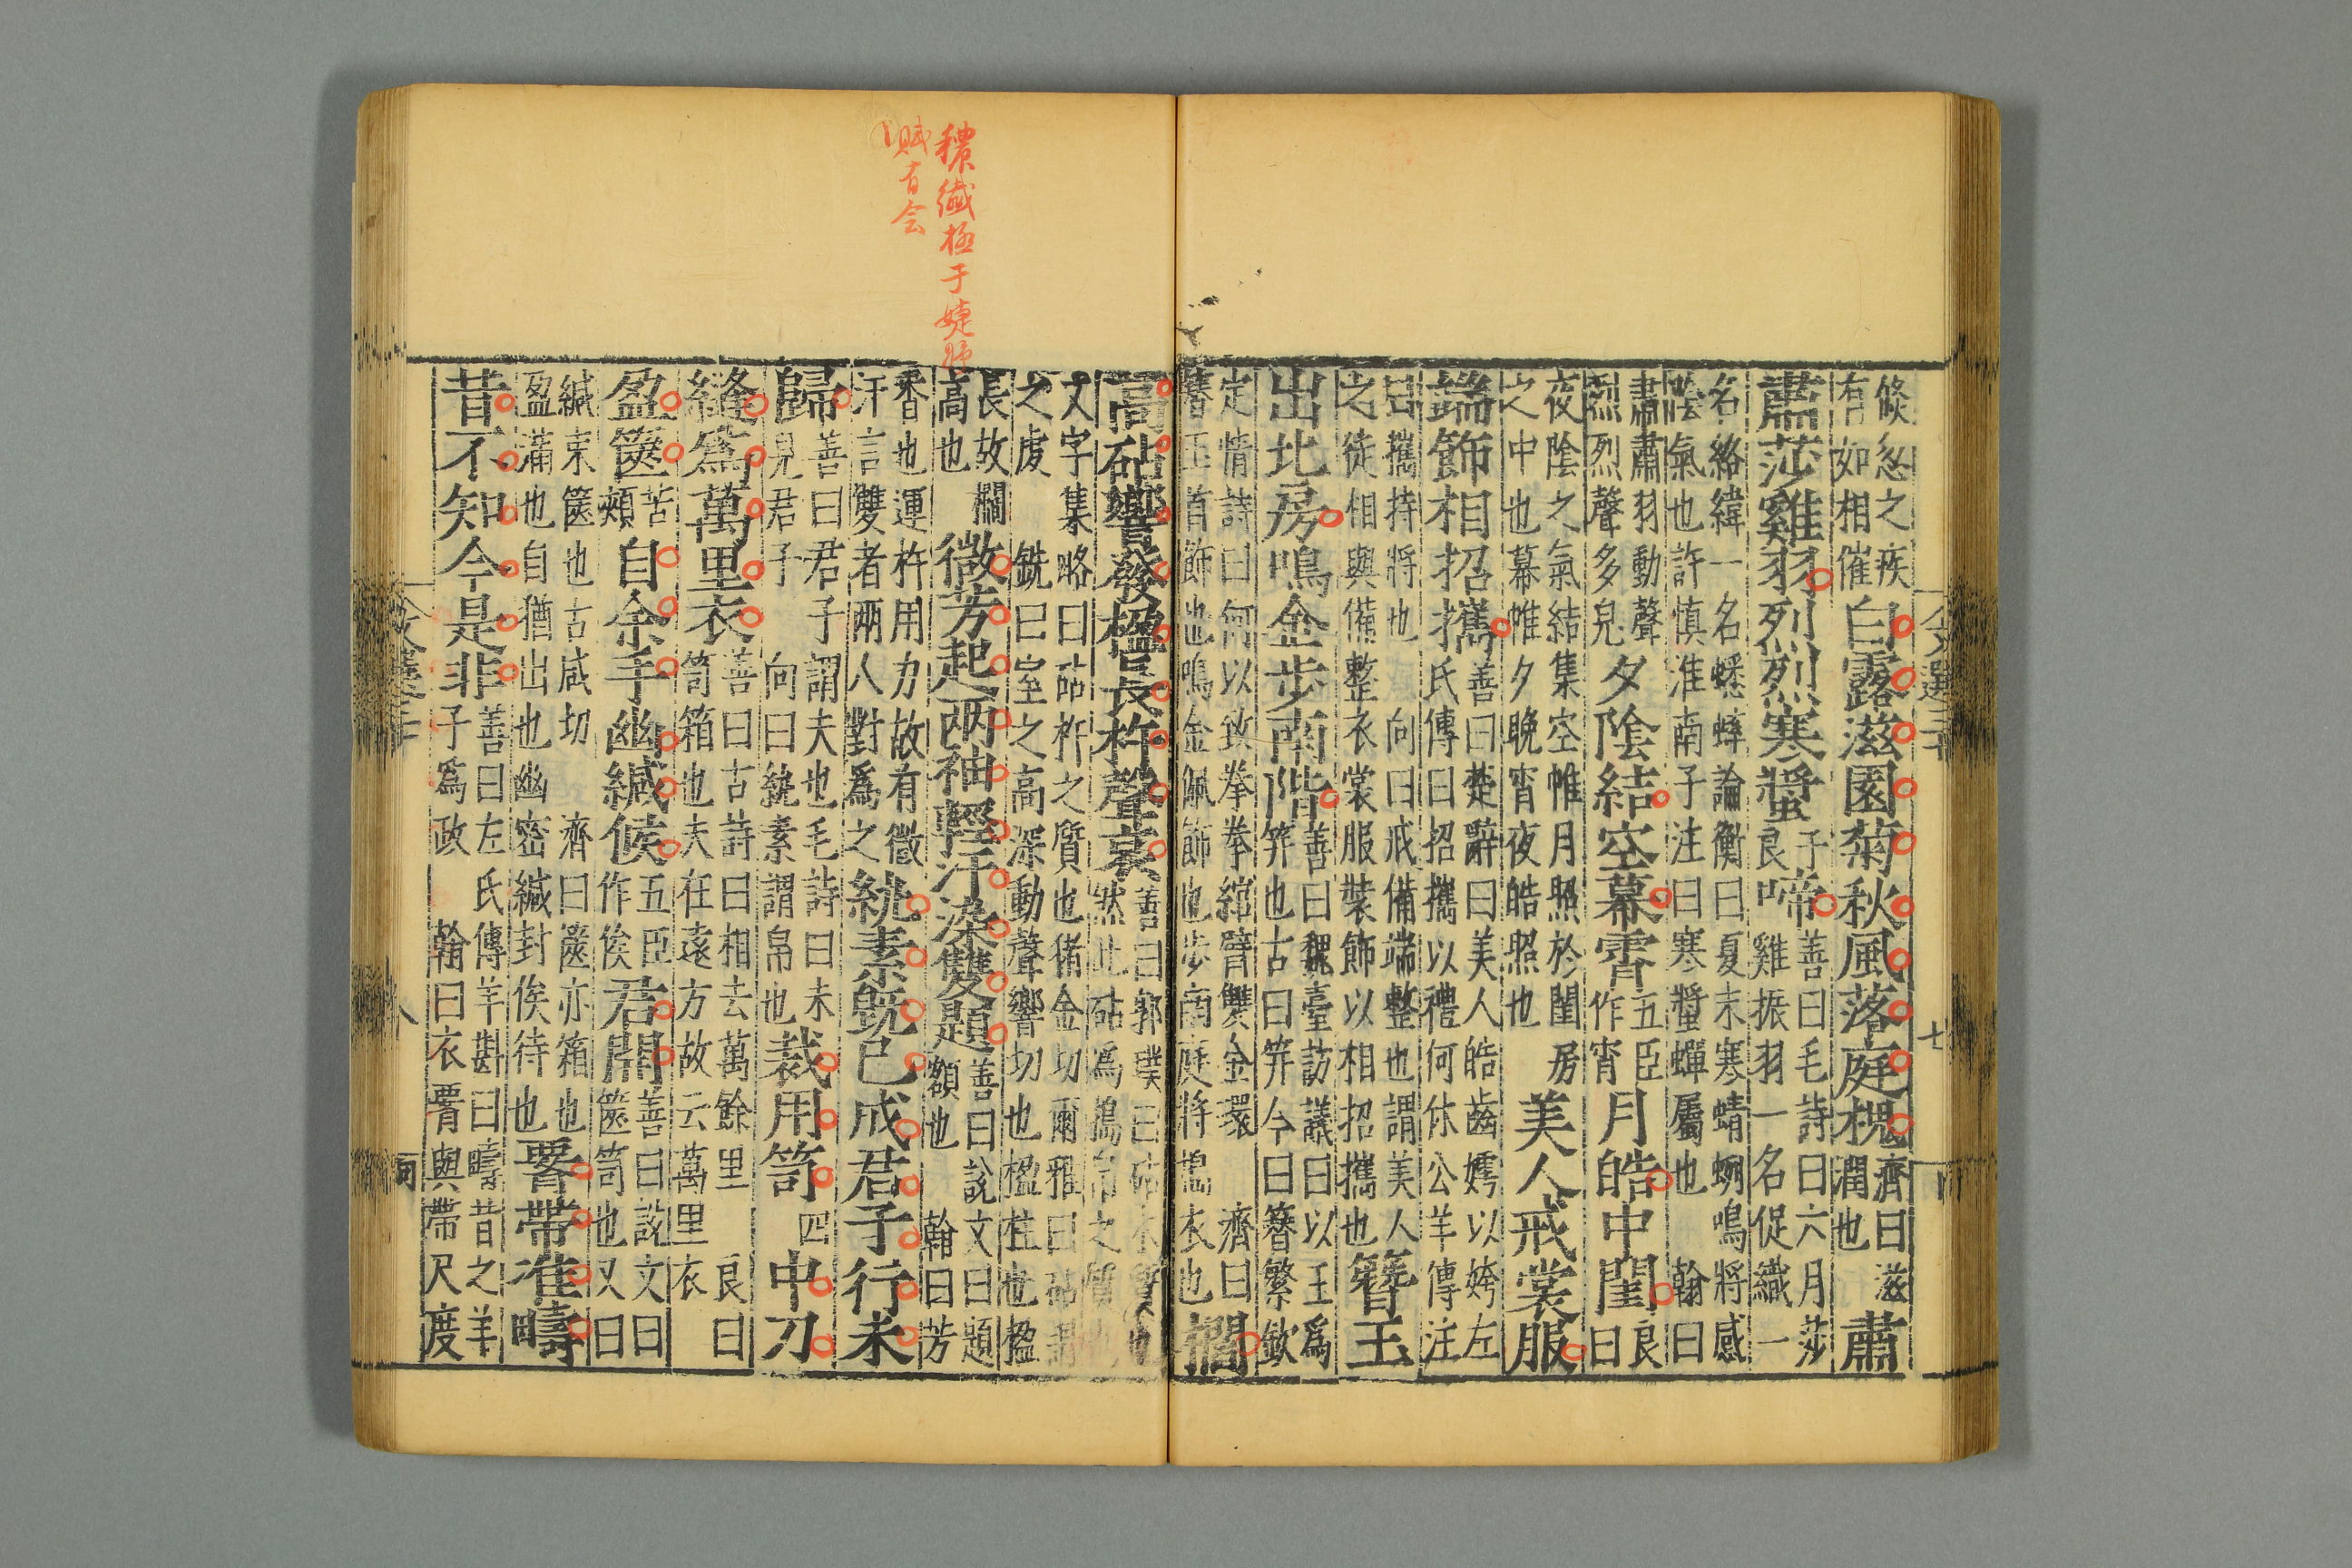 倐忽之疾
有如相催白露滋園菊秋風落庭槐齊曰滋
潤也蕭
莎雞羽烈烈寒螿子
良啼善曰毛詩曰六月莎
雞振羽一名促織一
名絡緯一名蟋蟀論衡曰夏末寒蜻蛚鳴將感
陰氣也許慎淮南子注曰寒螿蟬屬也翰曰
肅肅羽動聲
烈烈聲多皃夕陰結空幕霄五臣
作宵月皓中閨良
曰
夜陰之氣結集空帷月照於閨房
之中也幕帷夕晚宵夜皓照也美人戒裳服
端飾相招攜善曰楚辭曰美人皓齒嫮以姱左
氏傳曰招攜以禮何休公羊傳注
曰攜持將也向曰戒備端整也謂美人
之徒相與備整衣裳服裝飾以相招攜也簪玉
出北房鳴金步南階善曰魏臺訪議曰以玉爲
笄也古曰笄今曰簪繁欽
定情詩曰何以致拳拳綰臂雙金環齊曰
簪玉首飾也鳴金佩飾也步南庭將擣衣也櫩
高砧響發楹長杵聲哀善曰郭璞曰砧木質也
然此砧爲擣帛之質也
文字集略曰砧杵之質也猪金切爾雅曰砧謂
之虔銑曰室之高深動聲響切也楹柱也楹
長故櫩
高也微芳起兩袖輕汗染雙題善曰說文曰題
額也翰曰芳
香也運杵用力故有微
汗言雙者兩人對爲之紈素旣已成君子行未
歸善曰君子謂夫也毛詩曰未
見君子向曰紈素謂帛也裁用笥四中刀
縫爲萬里衣善曰古詩曰相去萬餘里良曰
笥箱也夫在遠方故云萬里衣
盈篋苦
頰自余手幽緘候五臣
作俟君開善曰說文曰
篋笥也又曰
緘束篋也古咸切齊曰篋亦箱也
盈滿也自猶出也幽密緘封俟待也署帶准疇
昔不知今是非善曰左氏傳羊斟曰疇昔之羊
子爲政翰曰衣署與帶尺度
穠纖極于婕妤
賦有会
文選三十
七
八